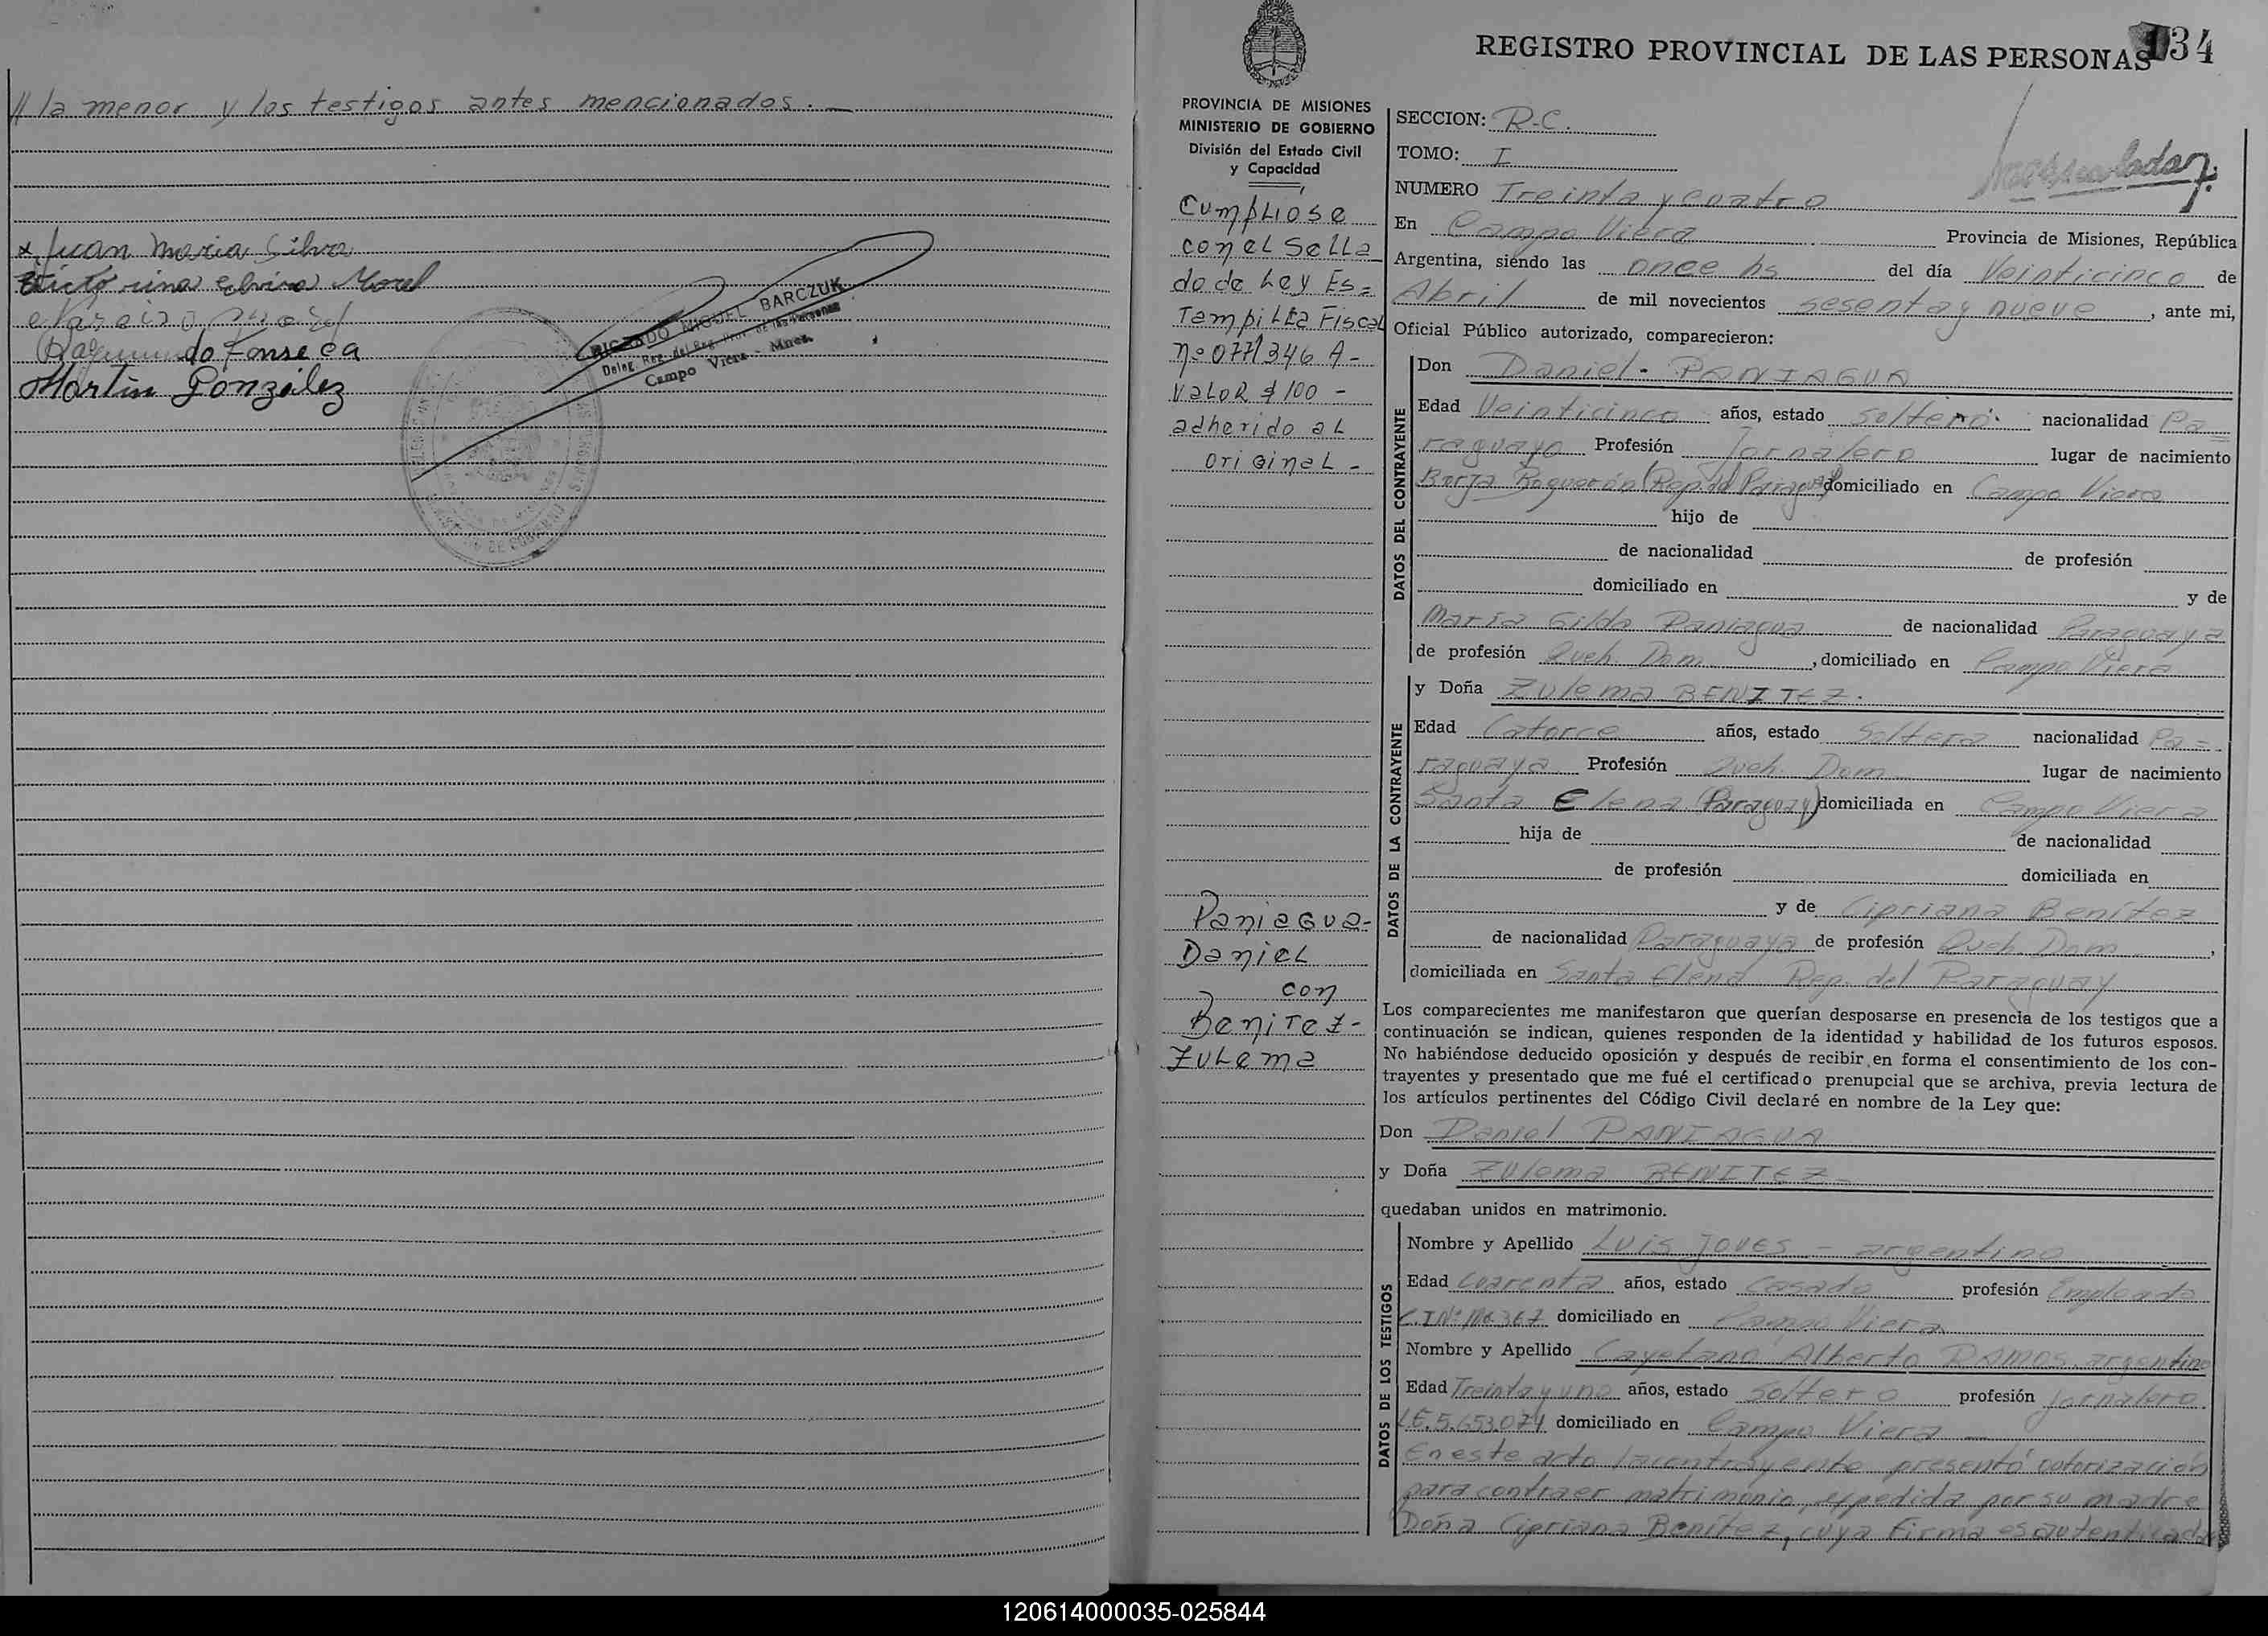 // la menor y los testigos antes mencionados. —
x Juan Maria Silva
Victorina Elvira Morel
Raymundo Fonseca
Martin González
RICARDO MIGUEL BARCZUK
Deleg. Reg. del Reg. Prov. de las Personas
Campo Viera - Mnes.
134
REGISTRO PROVINCIAL DE LAS PERSONAS
PROVINCIA DE MISIONES
MINISTERIO DE GOBIERNO
División del Estado Civil
y Capacidad
Cumpliose
con el Sella
do de Ley Es=
Tampilla Fiscal
nº 0771346 A-
Valor $ 100 -
adherido al
original -
Paniagua-
Daniel
con
Benitez-
Zulema
SECCION: R-C.
TOMO: I
NUMERO Treinta y cuatro
En Campo Viera Provincia de Misiones, República
Argentina, siendo las once hs del día Veinticinco de
Abril de mil novecientos sesenta y nueve, ante mi,
Oficial Público autorizado, comparecieron:
DATOS DEL CONTRAYENTE
Don Daniel - PANIAGUA
Edad Veinticinco años, estado soltero. nacionalidad Pa=
raguayo Profesión Jornalero lugar de nacimiento
Borja Boquerón (Rep. del Paraguay) domiciliado en Campo Viera
hijo de
de nacionalidad de profesión
domiciliado en y de
María Gilda Paniagua de nacionalidad Paraguaya
de profesión Queh. Dom. , domiciliado en Campo Viera
DATOS DE LA CONTRAYENTE
y Doña Zulema BENITEZ.
Edad Catorce años, estado Soltera nacionalidad Pa=
raguaya Profesión Queh. Dom lugar de nacimiento
Santa Elena (Paraguay) domiciliada en Campo Viera
hija de de nacionalidad
de profesión domiciliada en
y de Cipriana Benítez
de nacionalidad Paraguaya de profesión Queh. Dom ,
domiciliada en Santa Elena Rep. del Paraguay
Los comparecientes me manifestaron que querían desposarse en presencia de los testigos que a
continuación se indican, quienes responden de la identidad y habilidad de los futuros esposos.
No habiéndose deducido oposición y después de recibir en forma el consentimiento de los con-
trayentes y presentado que me fué el certificado prenupcial que se archiva, previa lectura de
los artículos pertinentes del Código Civil declaré en nombre de la Ley que:
Don Daniel PANIAGUA
y Doña Zulema BENITEZ
quedaban unidos en matrimonio.
DATOS DE LOS TESTIGOS
Nombre y Apellido Luis JOVES - argentino
Edad Cuarenta años, estado Casado profesión Empleado
domiciliado en Campo Viera
Nombre y Apellido Cayetano Alberto RAMOS. argentino
Edad Treinta y uno años, estado Soltero profesión Jornalero.
L.E. 5.653.071 domiciliado en Campo Viera —
En este acto la contrayente presentó autorización
para contraer matrimonio, expedida por su madre
Doña Cipriana Benítez, cuya firma es autenticada
120614000035-025844